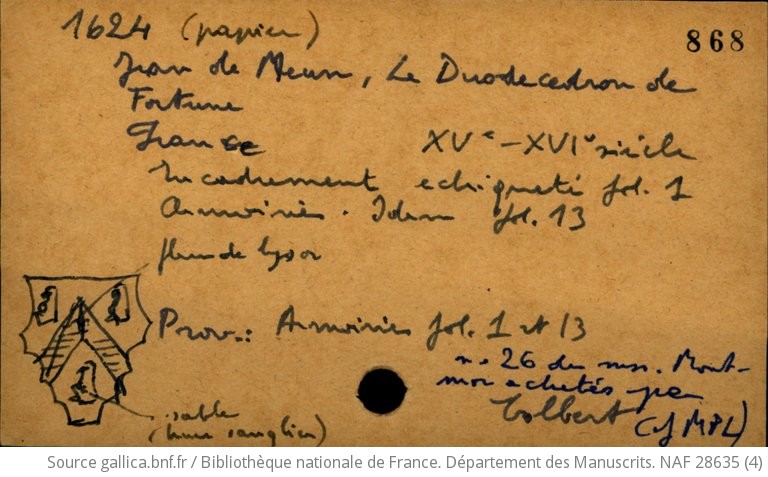 1624 (papier)
868
Jean de Meun, Le Duodecedron de
Fortune
France
XVe-XVIe siècle
Encadrement echiqueté fol. 1
Armoiries. Idem fol. 13
fleur de lys or
Prov.: Armoiries fol. 1 et 13
n° 26 des mss. Mont-
mor achetés par
Colbert
(cf MPL)
sable
(hure sanglier)
Source gallica.bnf.fr / Bibliothèque nationale de France. Département des Manuscrits. NAF 28635 (4)